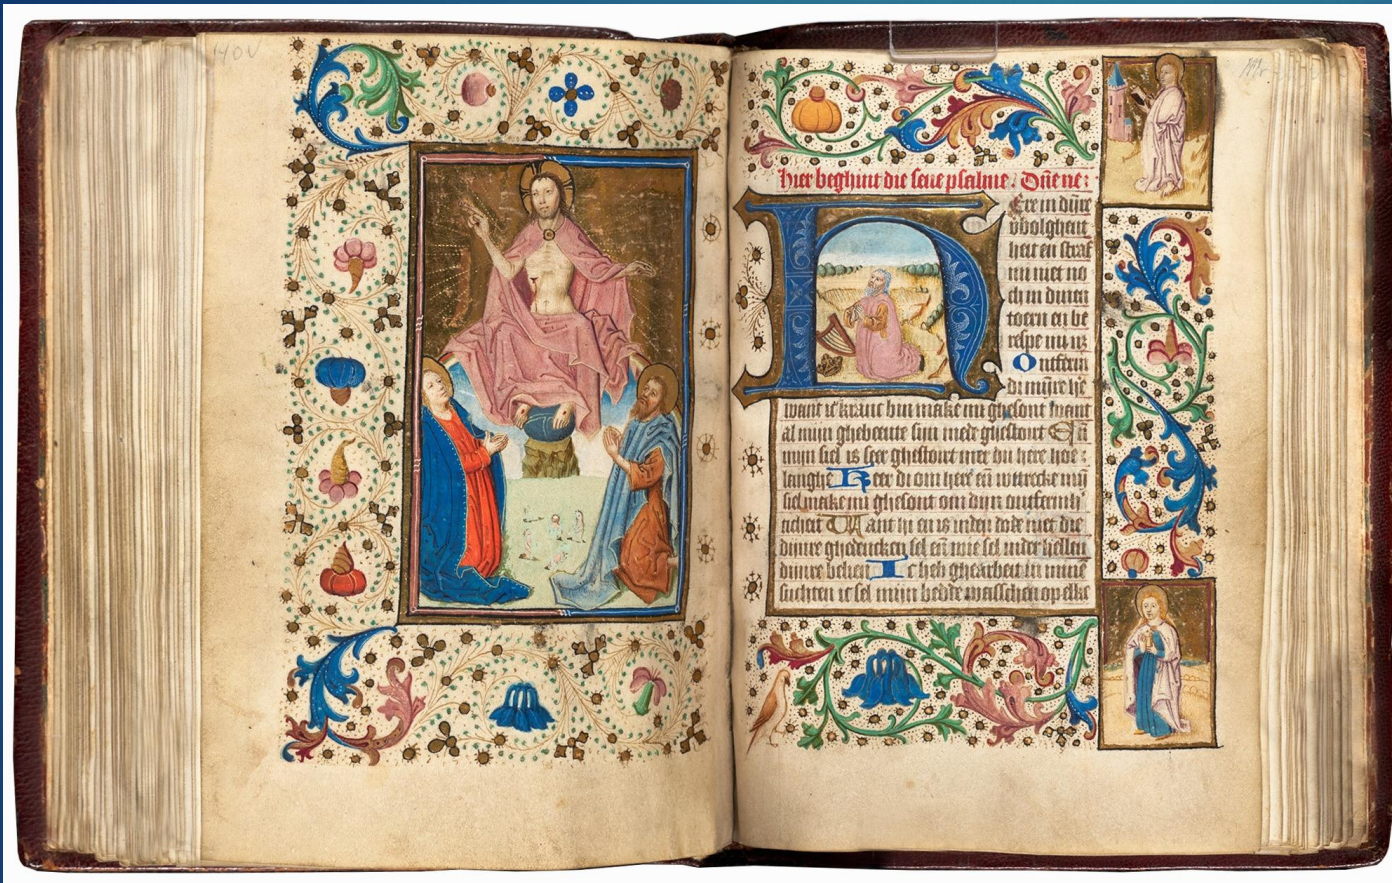 140v
hier beghint die seue psalme. Dñe ne:
Ere in dijnre
v̄bolghent
heit en straf
mi niet no
ch in dinen
toern en be
respe mi nz
Ontferm
di mijnre h̄e
want ic kranc bin make mi ghesont want
al mijn ghebeente sijn mede ghestoort Eñ
mijn siel is seer ghestoort mer du here hoe
langhe Keer di om here eñ wttrecke mijn
siel make mi ghesont om dijn ontfermh
ticheit Want hi en is inden dode niet die
dijnre ghedencken sel eñ wie sel inder hellen
dijnre belien Ic heb ghearbeit in mine
suchten ic sel mijn bedde wasschen op elke